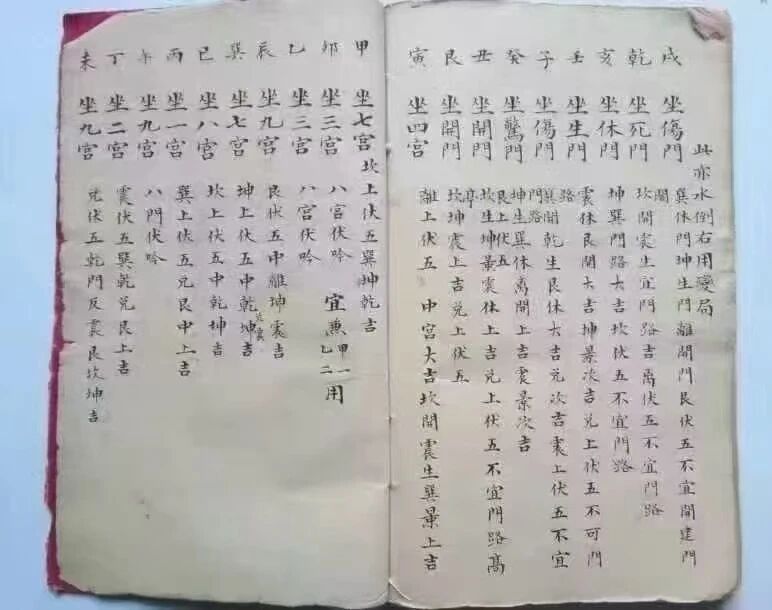 此亦水倒右用變局
戌 坐傷門 巽休門坤生門離開門艮伏五不宜開建門
乾 坐死門 坎開震生宜門路吉离伏五不宜門路
亥 坐休門 坤巽門路大吉坎伏五不宜門路
壬 坐生門 震休艮開大吉坤景次吉兑上伏五不可門路
子 坐傷門 巽開乾生艮休大吉兑次吉震上伏五不宜門路
癸 坐驚門 坤生巽休离開上吉震景次吉艮上伏五
丑 坐開門 坎生坤景震休上吉兑上伏五不宜門路高亭
艮 坐開門 坎坤震上吉兑上伏五
寅 坐四宫 離上伏五 中宫大吉坎開震生巽景上吉
甲 坐七宫 坎上伏五巽坤乾吉
卯 坐三宫 八宫伏吟 宜兼甲一乙二用
乙 坐三宫 八宫伏吟
辰 坐九宫 艮伏五中離坤震吉
巽 坐七宫 坤上伏五中乾坤吉
巳 坐八宫 坎上伏五中乾坤吉
丙 坐一宫 巽上伏五兑艮中上吉
午 坐九宫 八門伏吟
丁 坐二宫 震伏五巽乾兑艮上吉
未 坐九宫 兑伏五乾門反震艮坎坤吉